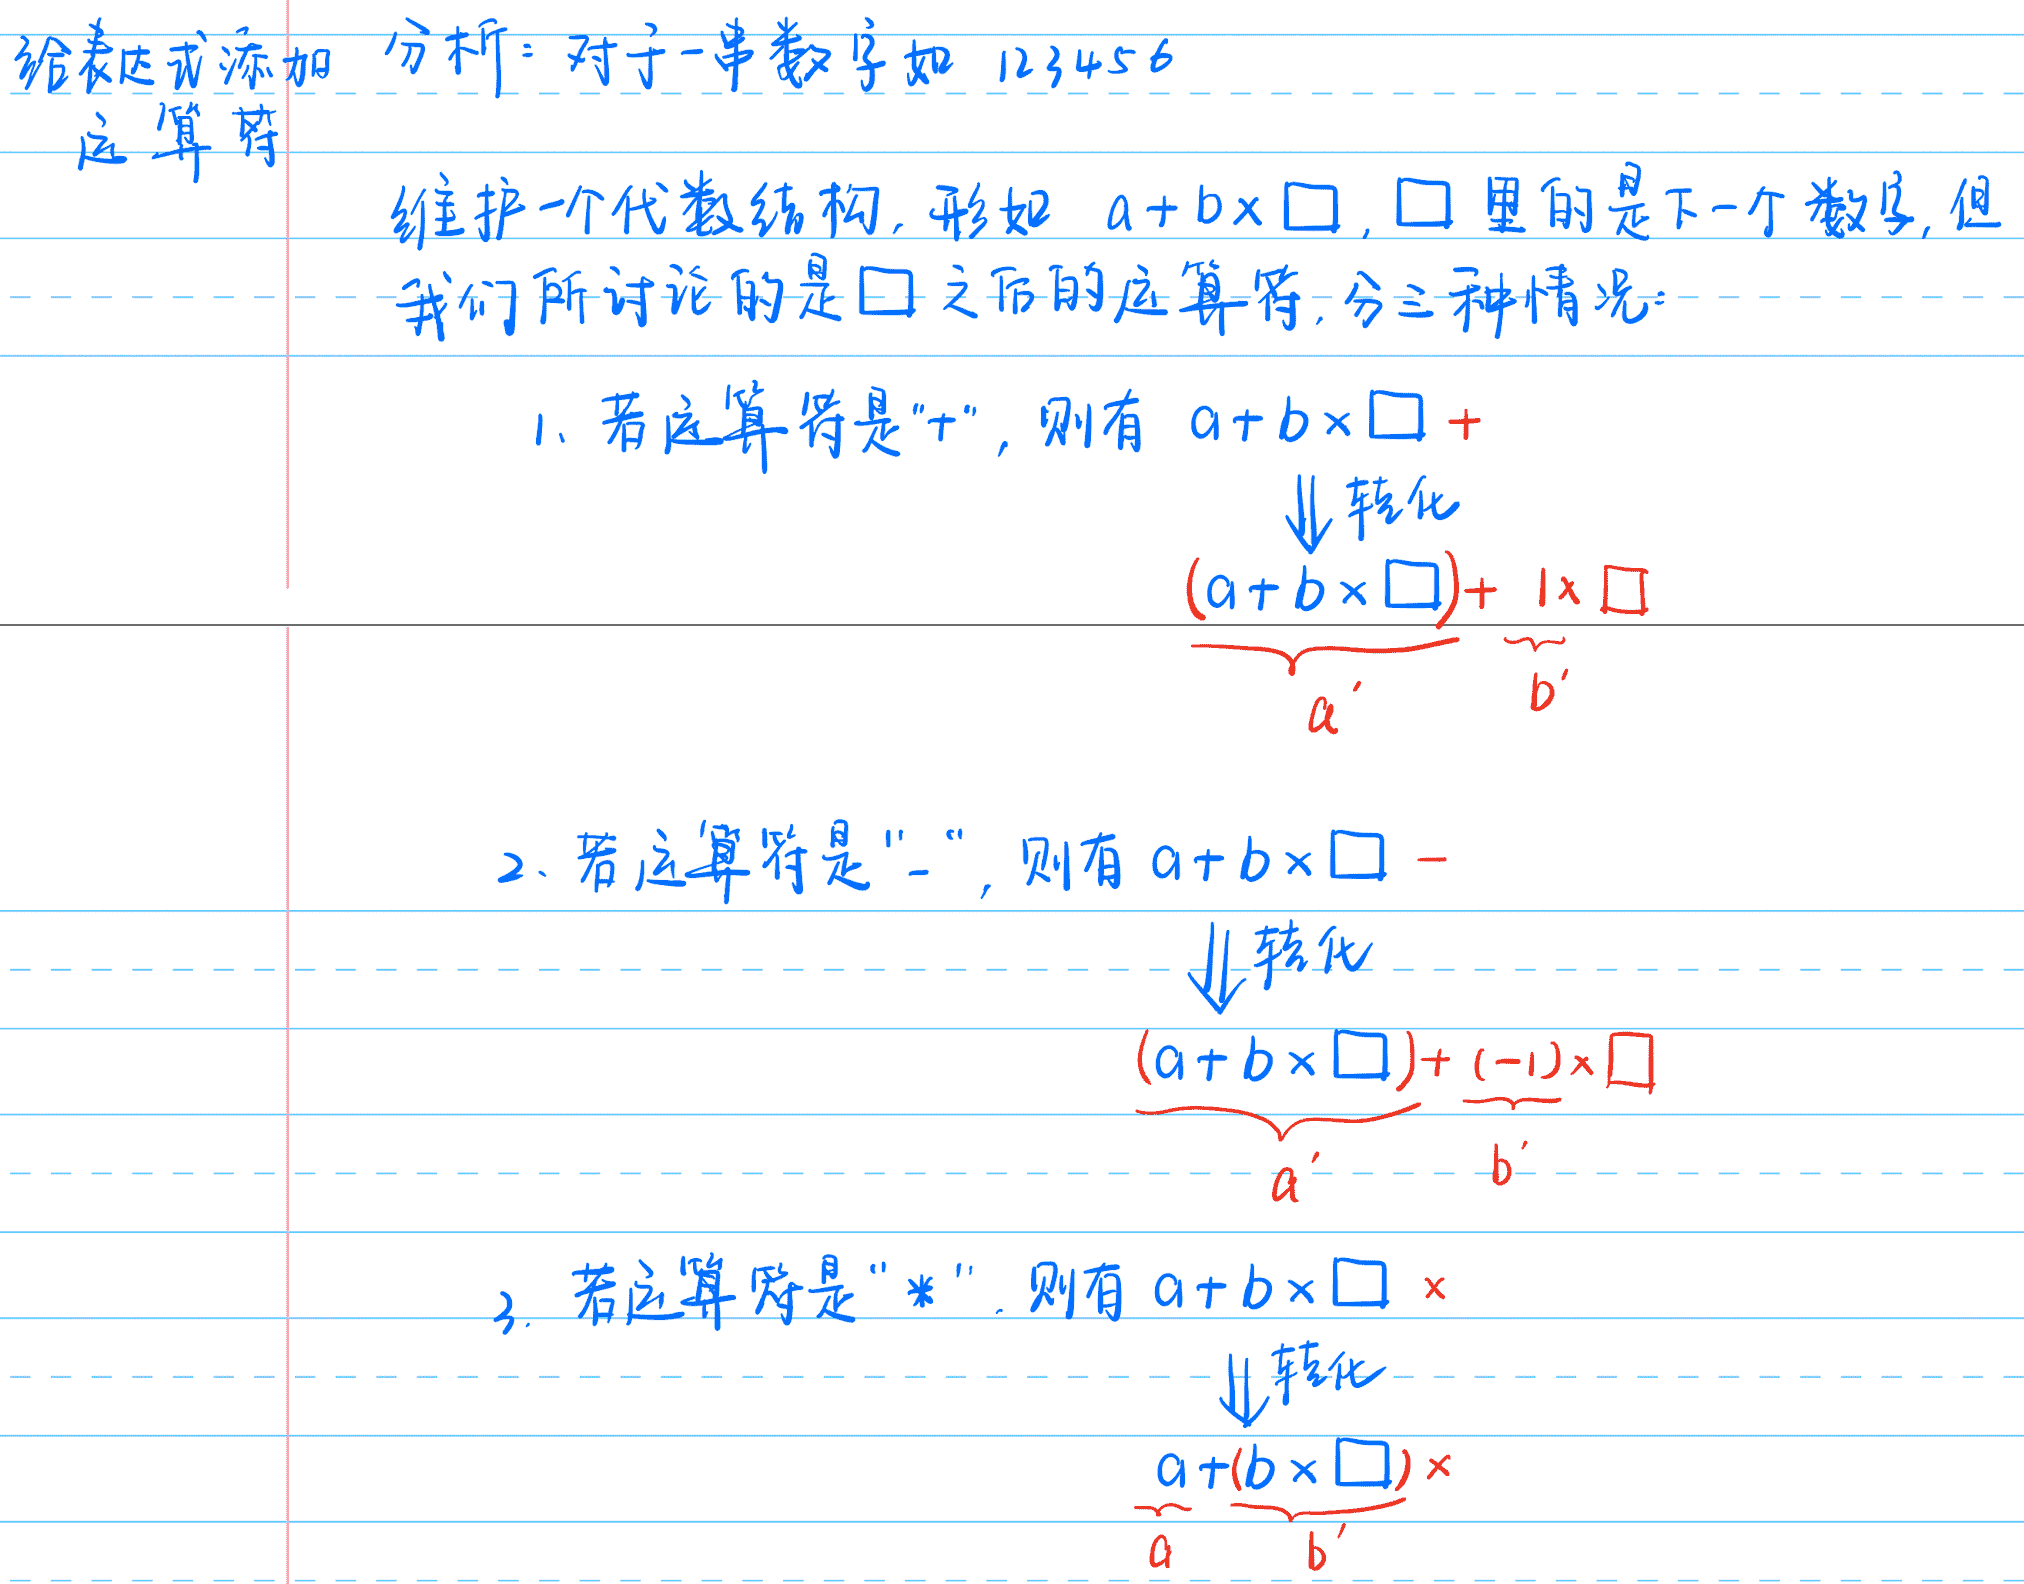 给表达式添加
运算符
分析：对于一串数字如 123456
维护一个代数结构，形如 a+b×□，□里的是下一个数字，但
我们所讨论的是□之后的运算符，分三种情况：
1、若运算符是"+"，则有 a+b×□+
⇓转化
(a+b×□)+1×□
a′ b′
2、若运算符是"-"，则有 a+b×□-
⇓转化
(a+b×□)+(-1)×□
a′ b′
3. 若运算符是"*"，则有 a+b×□×
⇓转化
a+(b×□)×
a b′